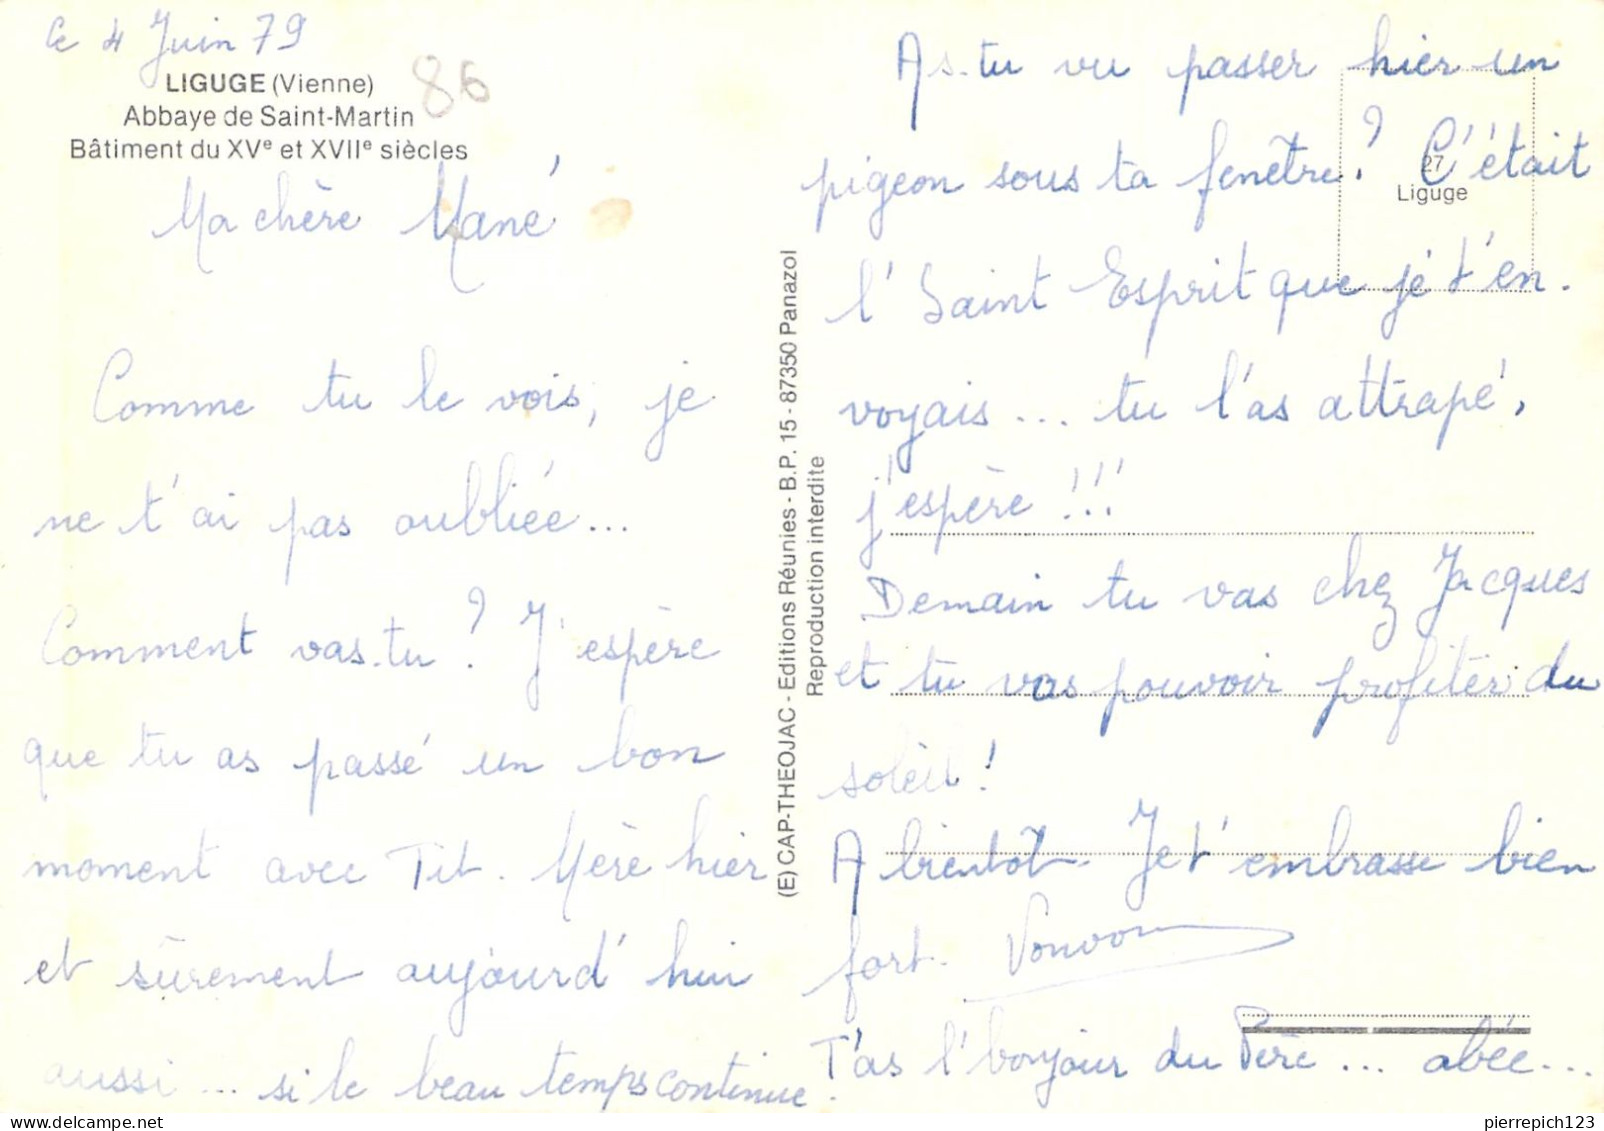 Le 4 Juin 79
86
LIGUGE (Vienne)
Abbaye de Saint-Martin
Bâtiment du XVe et XVIIe siècles
Ma chère Mané
Comme tu le vois, je
ne t'ai pas oubliée...
Comment vas-tu ? J'espère
que tu as passé un bon
moment avec Tit. Mère hier
et sûrement aujourd'hui
aussi ... si le beau temps continue.
(E) CAP-THEOJAC - Editions Réunies - B.P. 15 - 87350 Panazol
Reproduction interdite
27
Liguge
As-tu vu passer hier un
pigeon sous ta fenêtre ? C'était
l'Saint Esprit que je t'en-
voyais ... tu l'as attrapé,
j'espère !!!
Demain tu vas chez Jacques
et tu vas pouvoir profiter du
soleil !
A bientôt. Je t'embrasse bien
fort.
T'as l'bonjour du Père ... abée...
pierrepich123